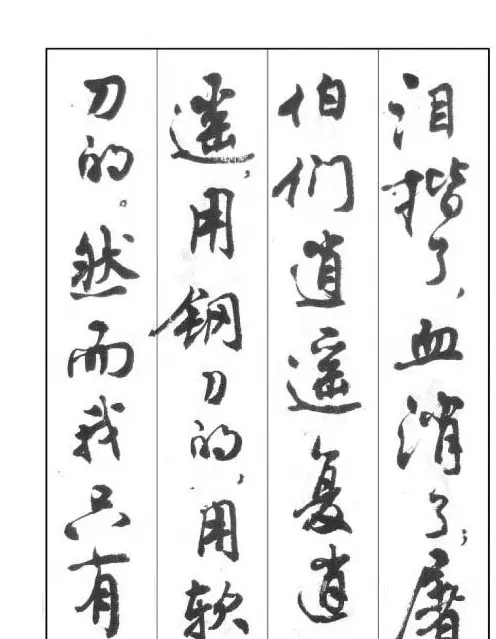 泪揩了，血消了；屠
伯们逍遥复逍
遥，用钢刀的，用软
刀的。然而我只有